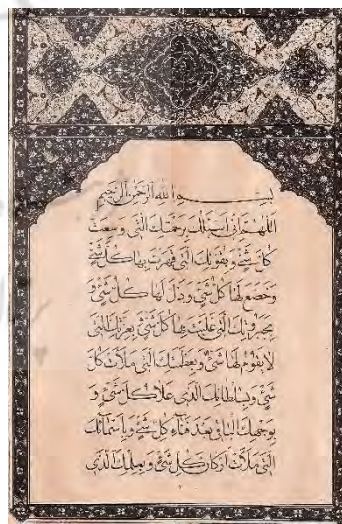 بسم الله الرحمن الرحيم
اللهم اني اسئلك برحمتك التي وسعت
كل شئ و بقوتك التي قهرت بها كل شئ
و خضع لها كل شئ و ذل لها كل شئ و
بجبروتك التي غلبت بها كل شئ و بعزتك التي
لا يقوم لها شئ و بعظمتك التي ملأت كل
شئ و بسلطانك الذي علا كل شئ و
بوجهك الباقي بعد فناء كل شئ و باسمائك
التي ملأت اركان كل شئ و بعلمك الذي